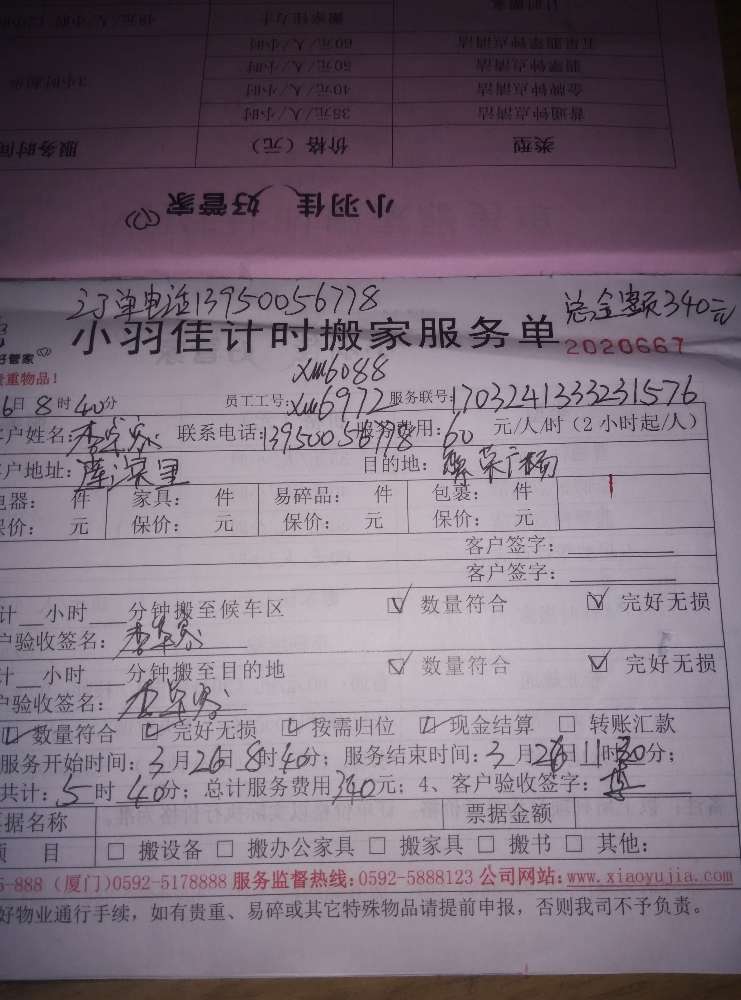 计时搬家
搬家住力于
48元/人/小时
五星翡翠钟点清洁
60元/人/小时
翡翠钟点清洁
50元/人/小时
金牌钟点清洁
40元/人/小时
3小时起
普通钟点清洁
35元/人/小时
类型
价格（元）
服务时间
小羽佳 好管家
订单电话13950056778
总金额340元
小羽佳计时搬家服务单
2020667
好管家
贵重物品！
xm6088
6日8时40分
员工工号：xm6972 服务联号：1703241333231576
客户姓名： 联系电话：13950056778 服务费用：60 元/人/时（2小时起/人）
客户地址： 目的地：
电器： 件 家具： 件 易碎品： 件 包裹： 件
保价： 元 保价： 元 保价： 元 保价： 元
客户签字：
客户签字：
计__小时___分钟搬至候车区 ☑ 数量符合 ☑ 完好无损
户验收签名：
计__小时___分钟搬至目的地 ☑ 数量符合 ☑ 完好无损
户验收签名：
☑ 数量符合 ☑ 完好无损 ☑ 按需归位 ☑ 现金结算 □ 转账汇款
服务开始时间：3月26日8时40分；服务结束时间：3月26日11时30分；
共计：5时40分；总计服务费用340元；4、客户验收签字：
票据名称 票据金额
项 目 □ 搬设备 □ 搬办公家具 □ 搬家具 □ 搬书 □ 其他：
5-888（厦门）0592-5178888 服务监督热线：0592-5888123 公司网站：www.xiaoyujia.com
好物业通行手续，如有贵重、易碎或其它特殊物品请提前申报，否则我司不予负责。